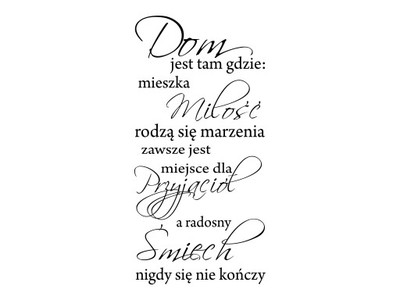 Dom
jest tam gdzie:
mieszka
Miłość
rodzą się marzenia
zawsze jest
miejsce dla
Przyjaciół
a radosny
Śmiech
nigdy się nie kończy